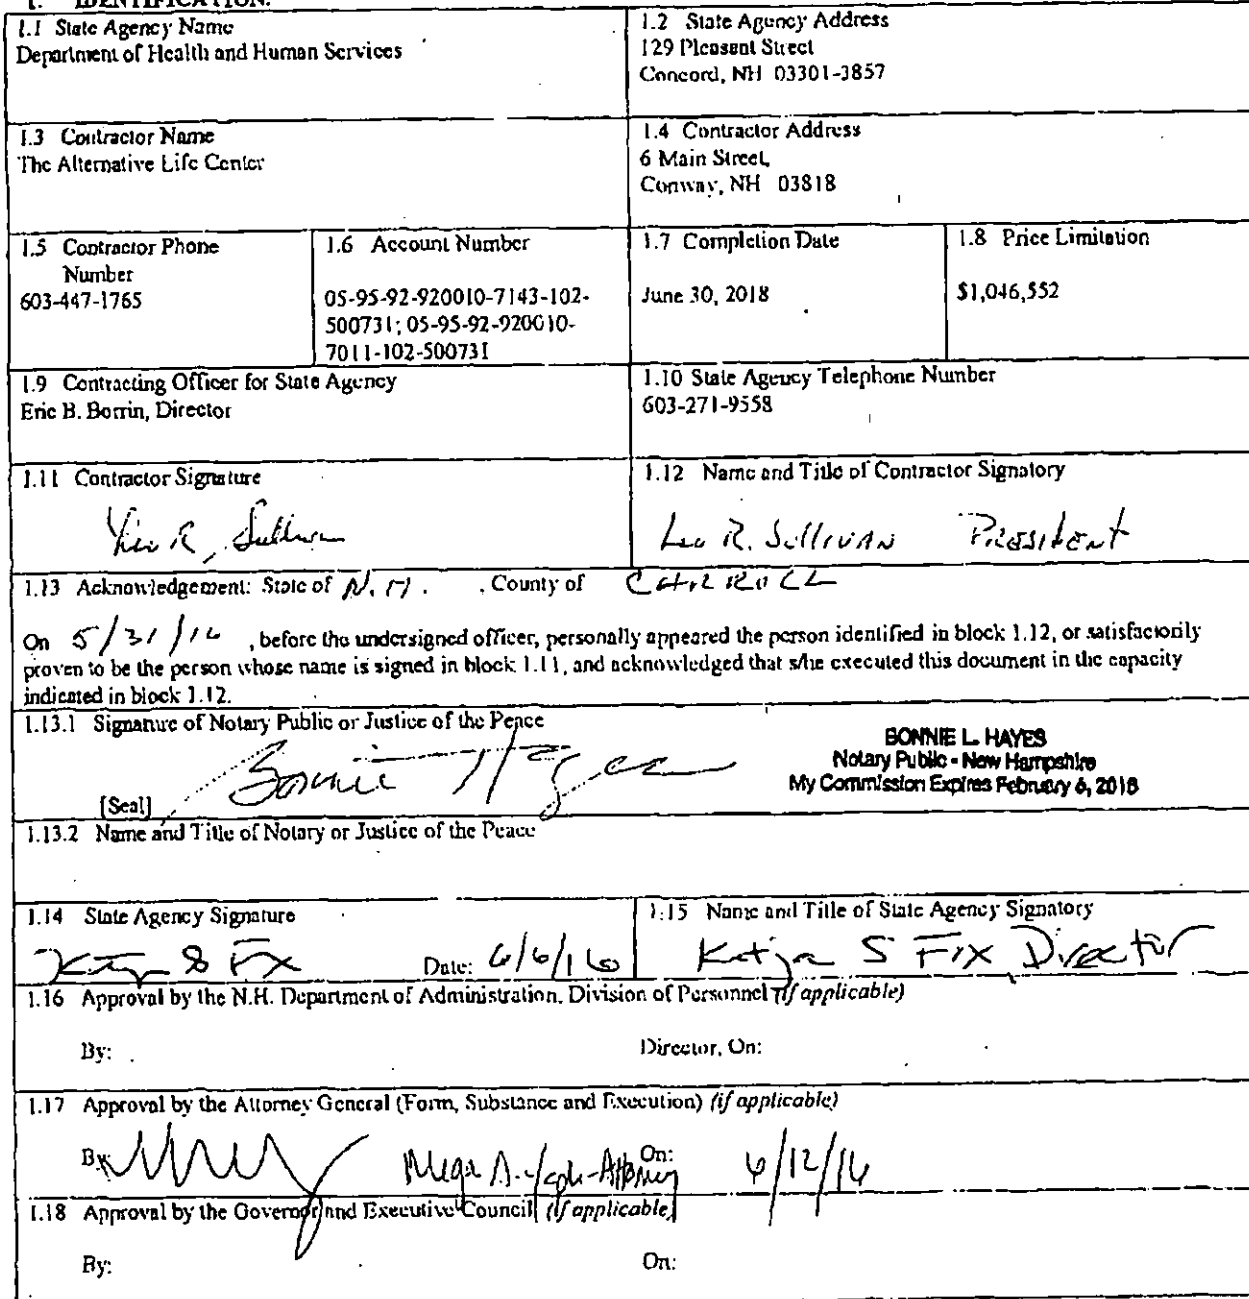 1. IDENTIFICATION.
1.1 State Agency Name
Department of Health and Human Services
1.2 State Agency Address
129 Pleasant Street
Concord, NH 03301-3857
1.3 Contractor Name
The Alternative Life Center
1.4 Contractor Address
6 Main Street,
Conway, NH 03818
1.5 Contractor Phone
Number
603-447-1765
1.6 Account Number
05-95-92-920010-7143-102-
500731; 05-95-92-920010-
7011-102-500731
1.7 Completion Date
June 30, 2018
1.8 Price Limitation
$1,046,552
1.9 Contracting Officer for State Agency
Eric B. Borrin, Director
1.10 State Agency Telephone Number
603-271-9558
1.11 Contractor Signature
Leo R. Sullivan
1.12 Name and Title of Contractor Signatory
Leo R. Sullivan President
1.13 Acknowledgement: State of N.H. , County of CARROLL
On 5/31/16 , before the undersigned officer, personally appeared the person identified in block 1.12, or satisfactorily
proven to be the person whose name is signed in block 1.11, and acknowledged that s/he executed this document in the capacity
indicated in block 1.12.
1.13.1 Signature of Notary Public or Justice of the Peace
Bonnie Hayes
[Seal]
BONNIE L. HAYES
Notary Public - New Hampshire
My Commission Expires February 6, 2018
1.13.2 Name and Title of Notary or Justice of the Peace
1.14 State Agency Signature
Date: 6/6/16
1.15 Name and Title of State Agency Signatory
Katja S Fox Director
1.16 Approval by the N.H. Department of Administration, Division of Personnel (if applicable)
By:
Director, On:
1.17 Approval by the Attorney General (Form, Substance and Execution) (if applicable)
By: Attorney On: 6/12/16
1.18 Approval by the Governor and Executive Council (if applicable)
By:
On: